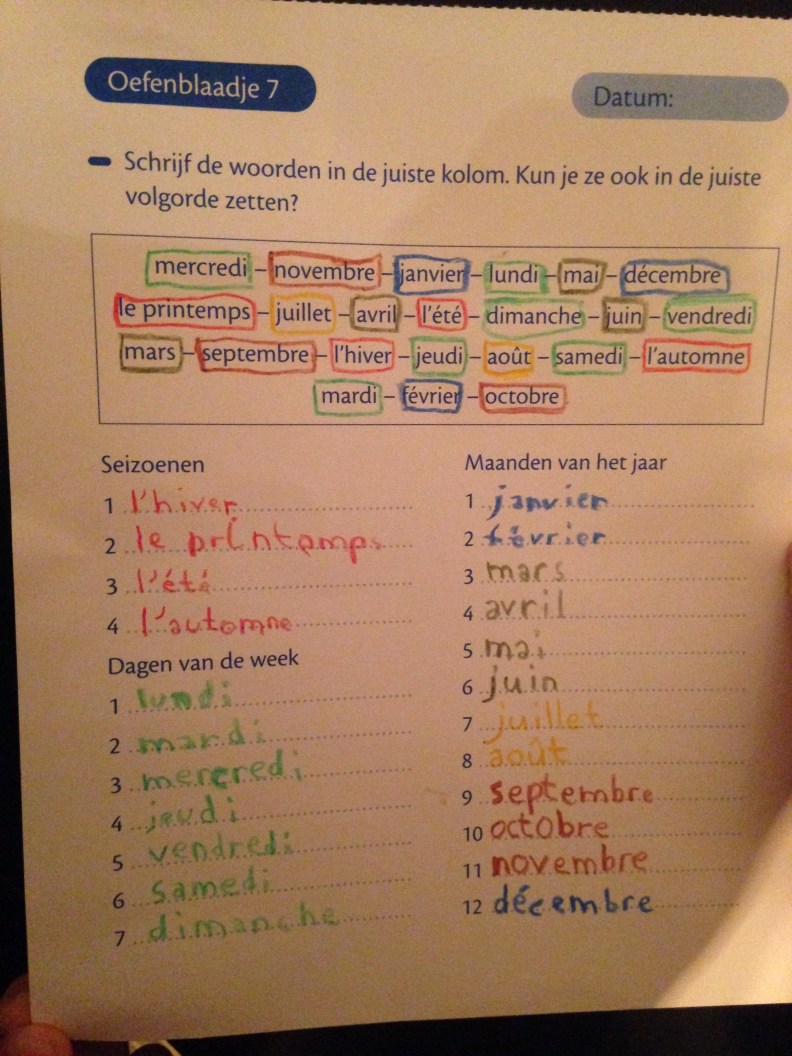 Oefenblaadje 7
Datum:
Schrijf de woorden in de juiste kolom. Kun je ze ook in de juiste
volgorde zetten?
mercredi – novembre – janvier – lundi – mai – décembre
le printemps – juillet – avril – l'été – dimanche – juin – vendredi
mars – septembre – l'hiver – jeudi – août – samedi – l'automne
mardi – février – octobre
Seizoenen
1 l'hiver
2 le printemps
3 l'été
4 l'automne
Dagen van de week
1 lundi
2 mardi
3 mercredi
4 jeudi
5 vendredi
6 samedi
7 dimanche
Maanden van het jaar
1 janvier
2 février
3 mars
4 avril
5 mai
6 juin
7 juillet
8 août
9 septembre
10 octobre
11 novembre
12 décembre